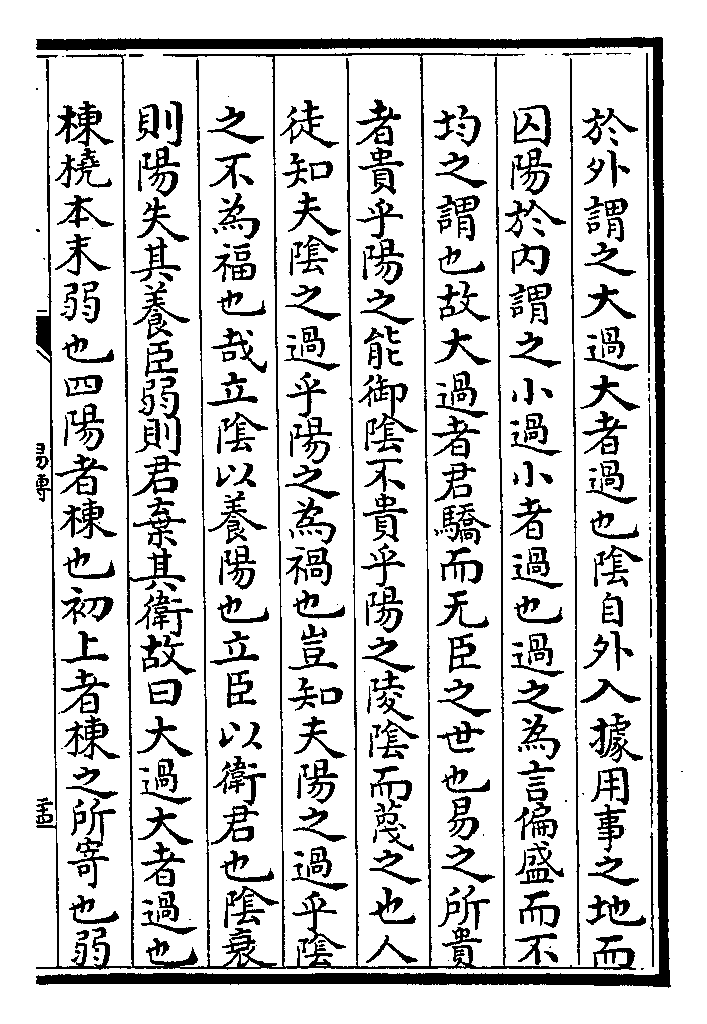 於外謂之大過大者過也陰自外入據用事之地而
囚陽於内謂之小過小者過也過之為言偏盛而不
均之謂也故大過者君驕而无臣之世也易之所貴
者貴乎陽之能御陰不貴乎陽之陵陰而蔑之也人
徒知夫陰之過乎陽之為禍也豈知夫陽之過乎陰
之不為福也哉立陰以養陽也立臣以衛君也陰衰
則陽失其養臣弱則君棄其衛故曰大過大者過也
棟橈本末弱也四陽者棟也初上者棟之所寄也弱
易傳